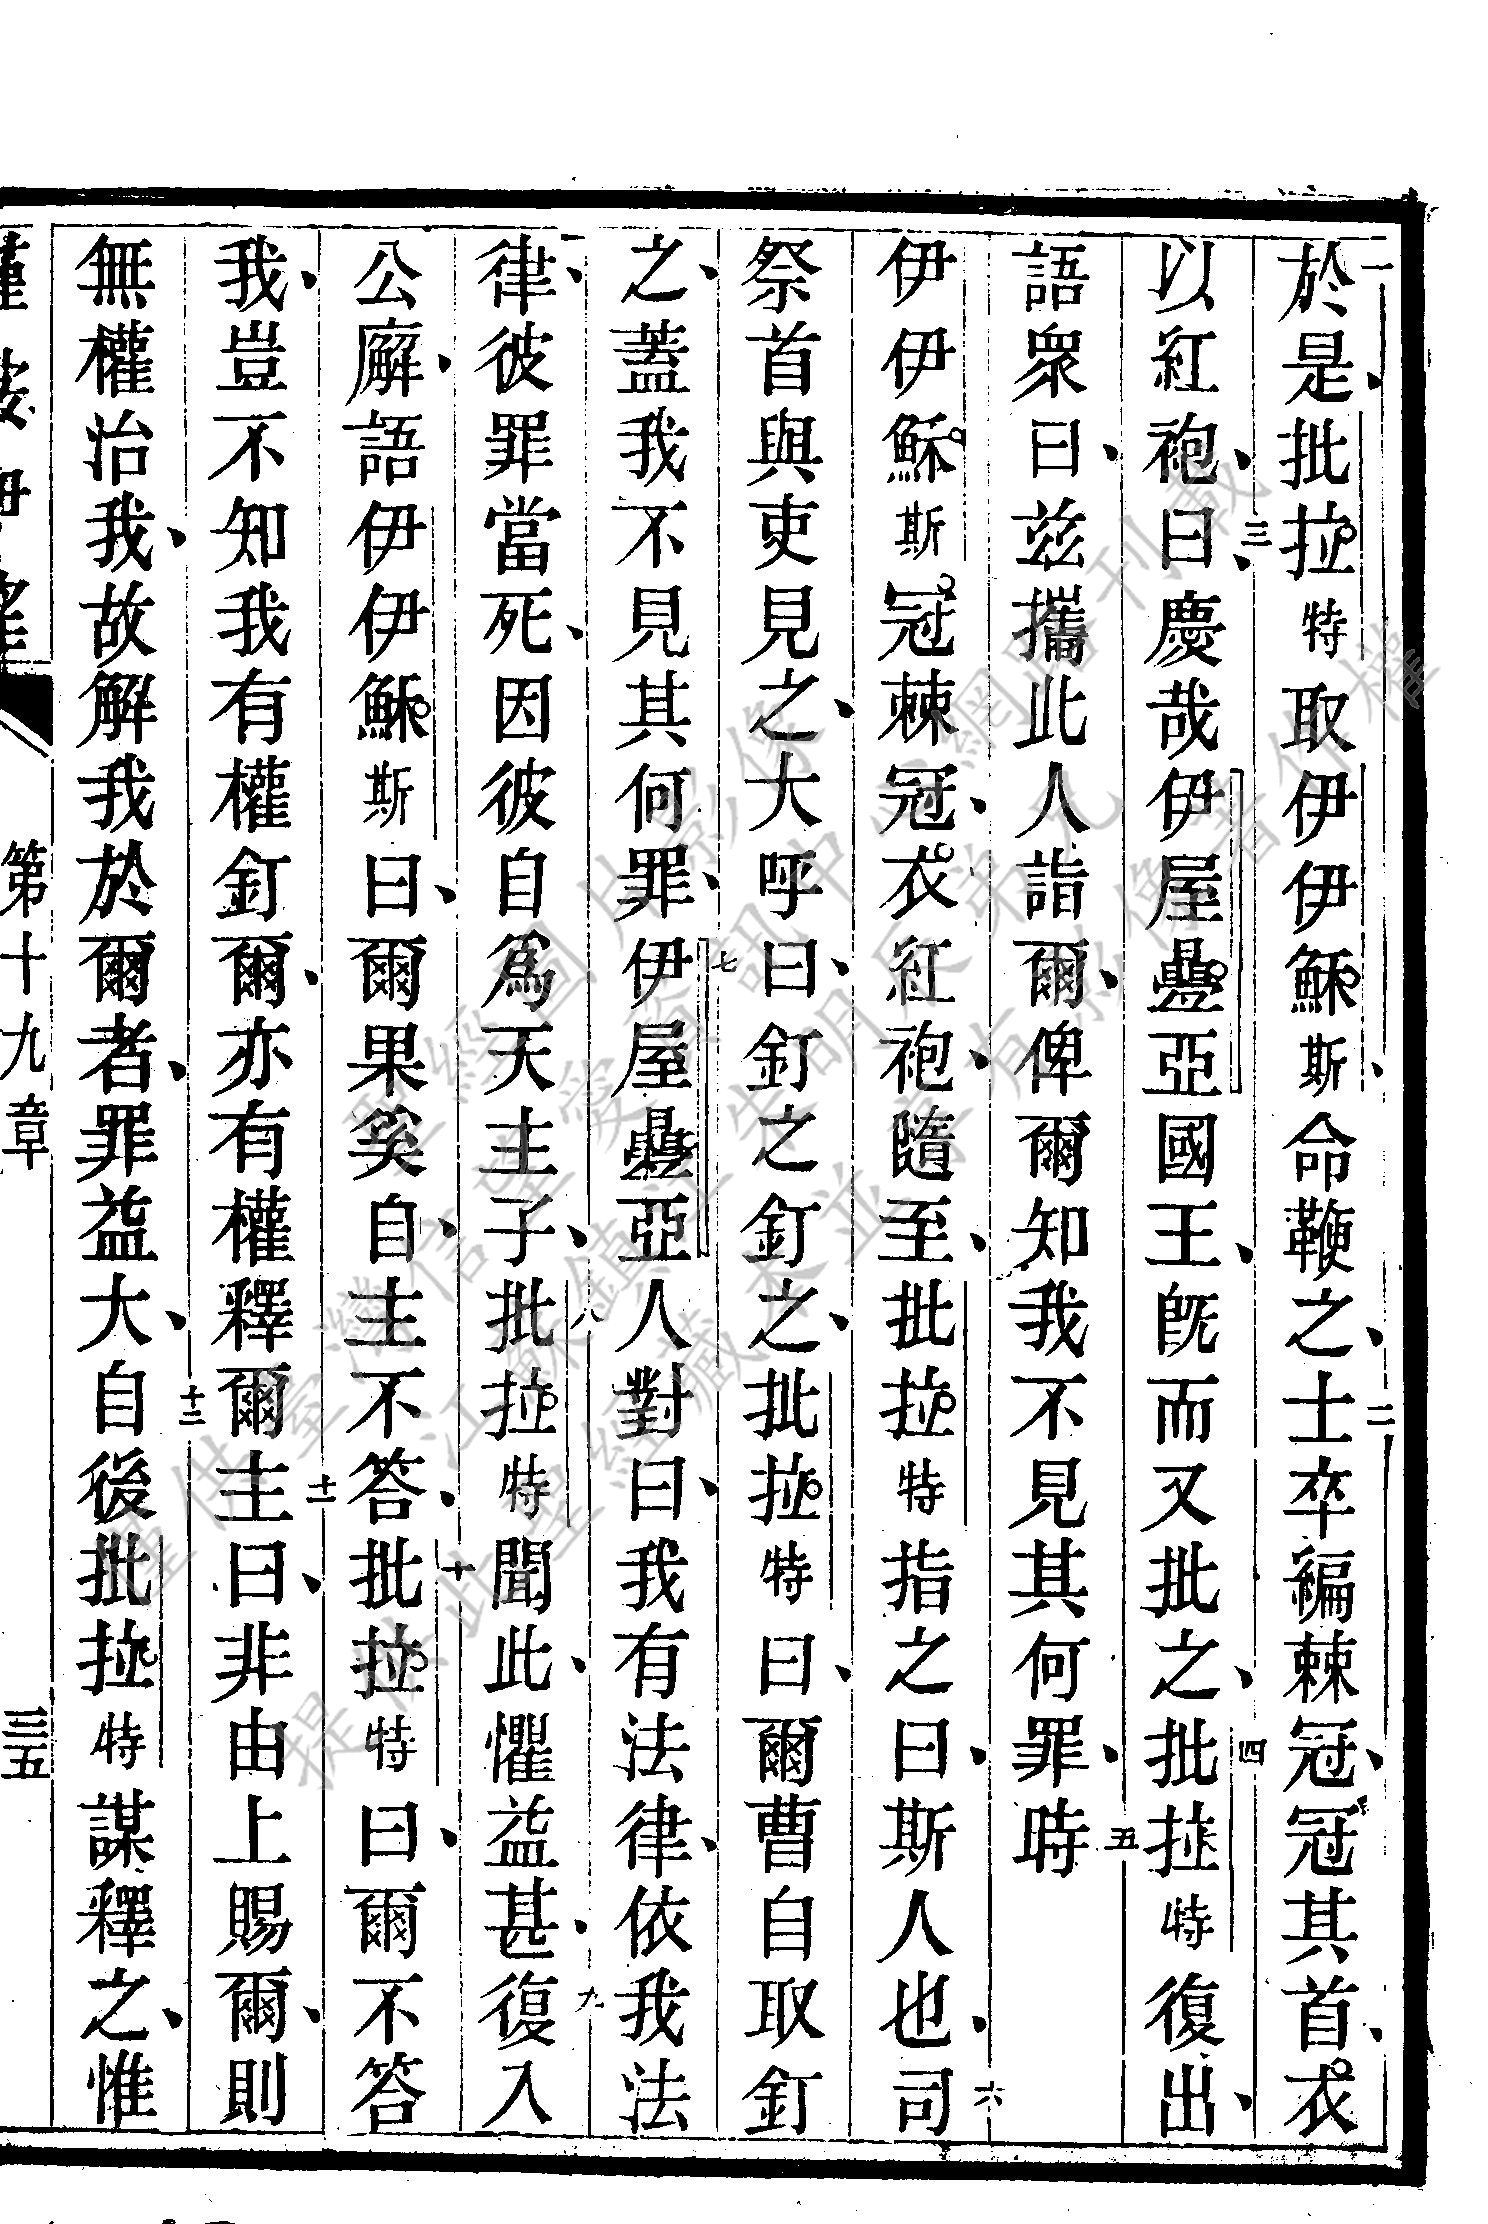 一於是、批拉特取伊伊穌斯、命鞭之、二士卒編棘冠、冠其首、衣
以紅袍、三曰、慶哉伊屋疊亞國王、旣而又批之、四批拉特復出、
語眾曰、兹攜此人詣爾、俾爾知我不見其何罪、五時
伊伊穌斯冠棘冠、衣紅袍、隨至、批拉特指之曰、斯人也、六司
祭首與吏見之、大呼曰、釘之釘之、批拉特曰、爾曹自取釘
之、蓋我不見其何罪、七伊屋疊亞人對曰、我有法律、依我法
律、彼罪當死、因彼自爲天主子、八批拉特聞此、懼益甚、九復入
公廨、語伊伊穌斯曰、爾果奚自、主不答、十批拉特曰、爾不答
我、豈不知我有權釘爾、亦有權釋爾、十一主曰、非由上賜爾、則
無權治我、故解我於爾者、罪益大、十二自後批拉特謀釋之、惟
第十九章 三五